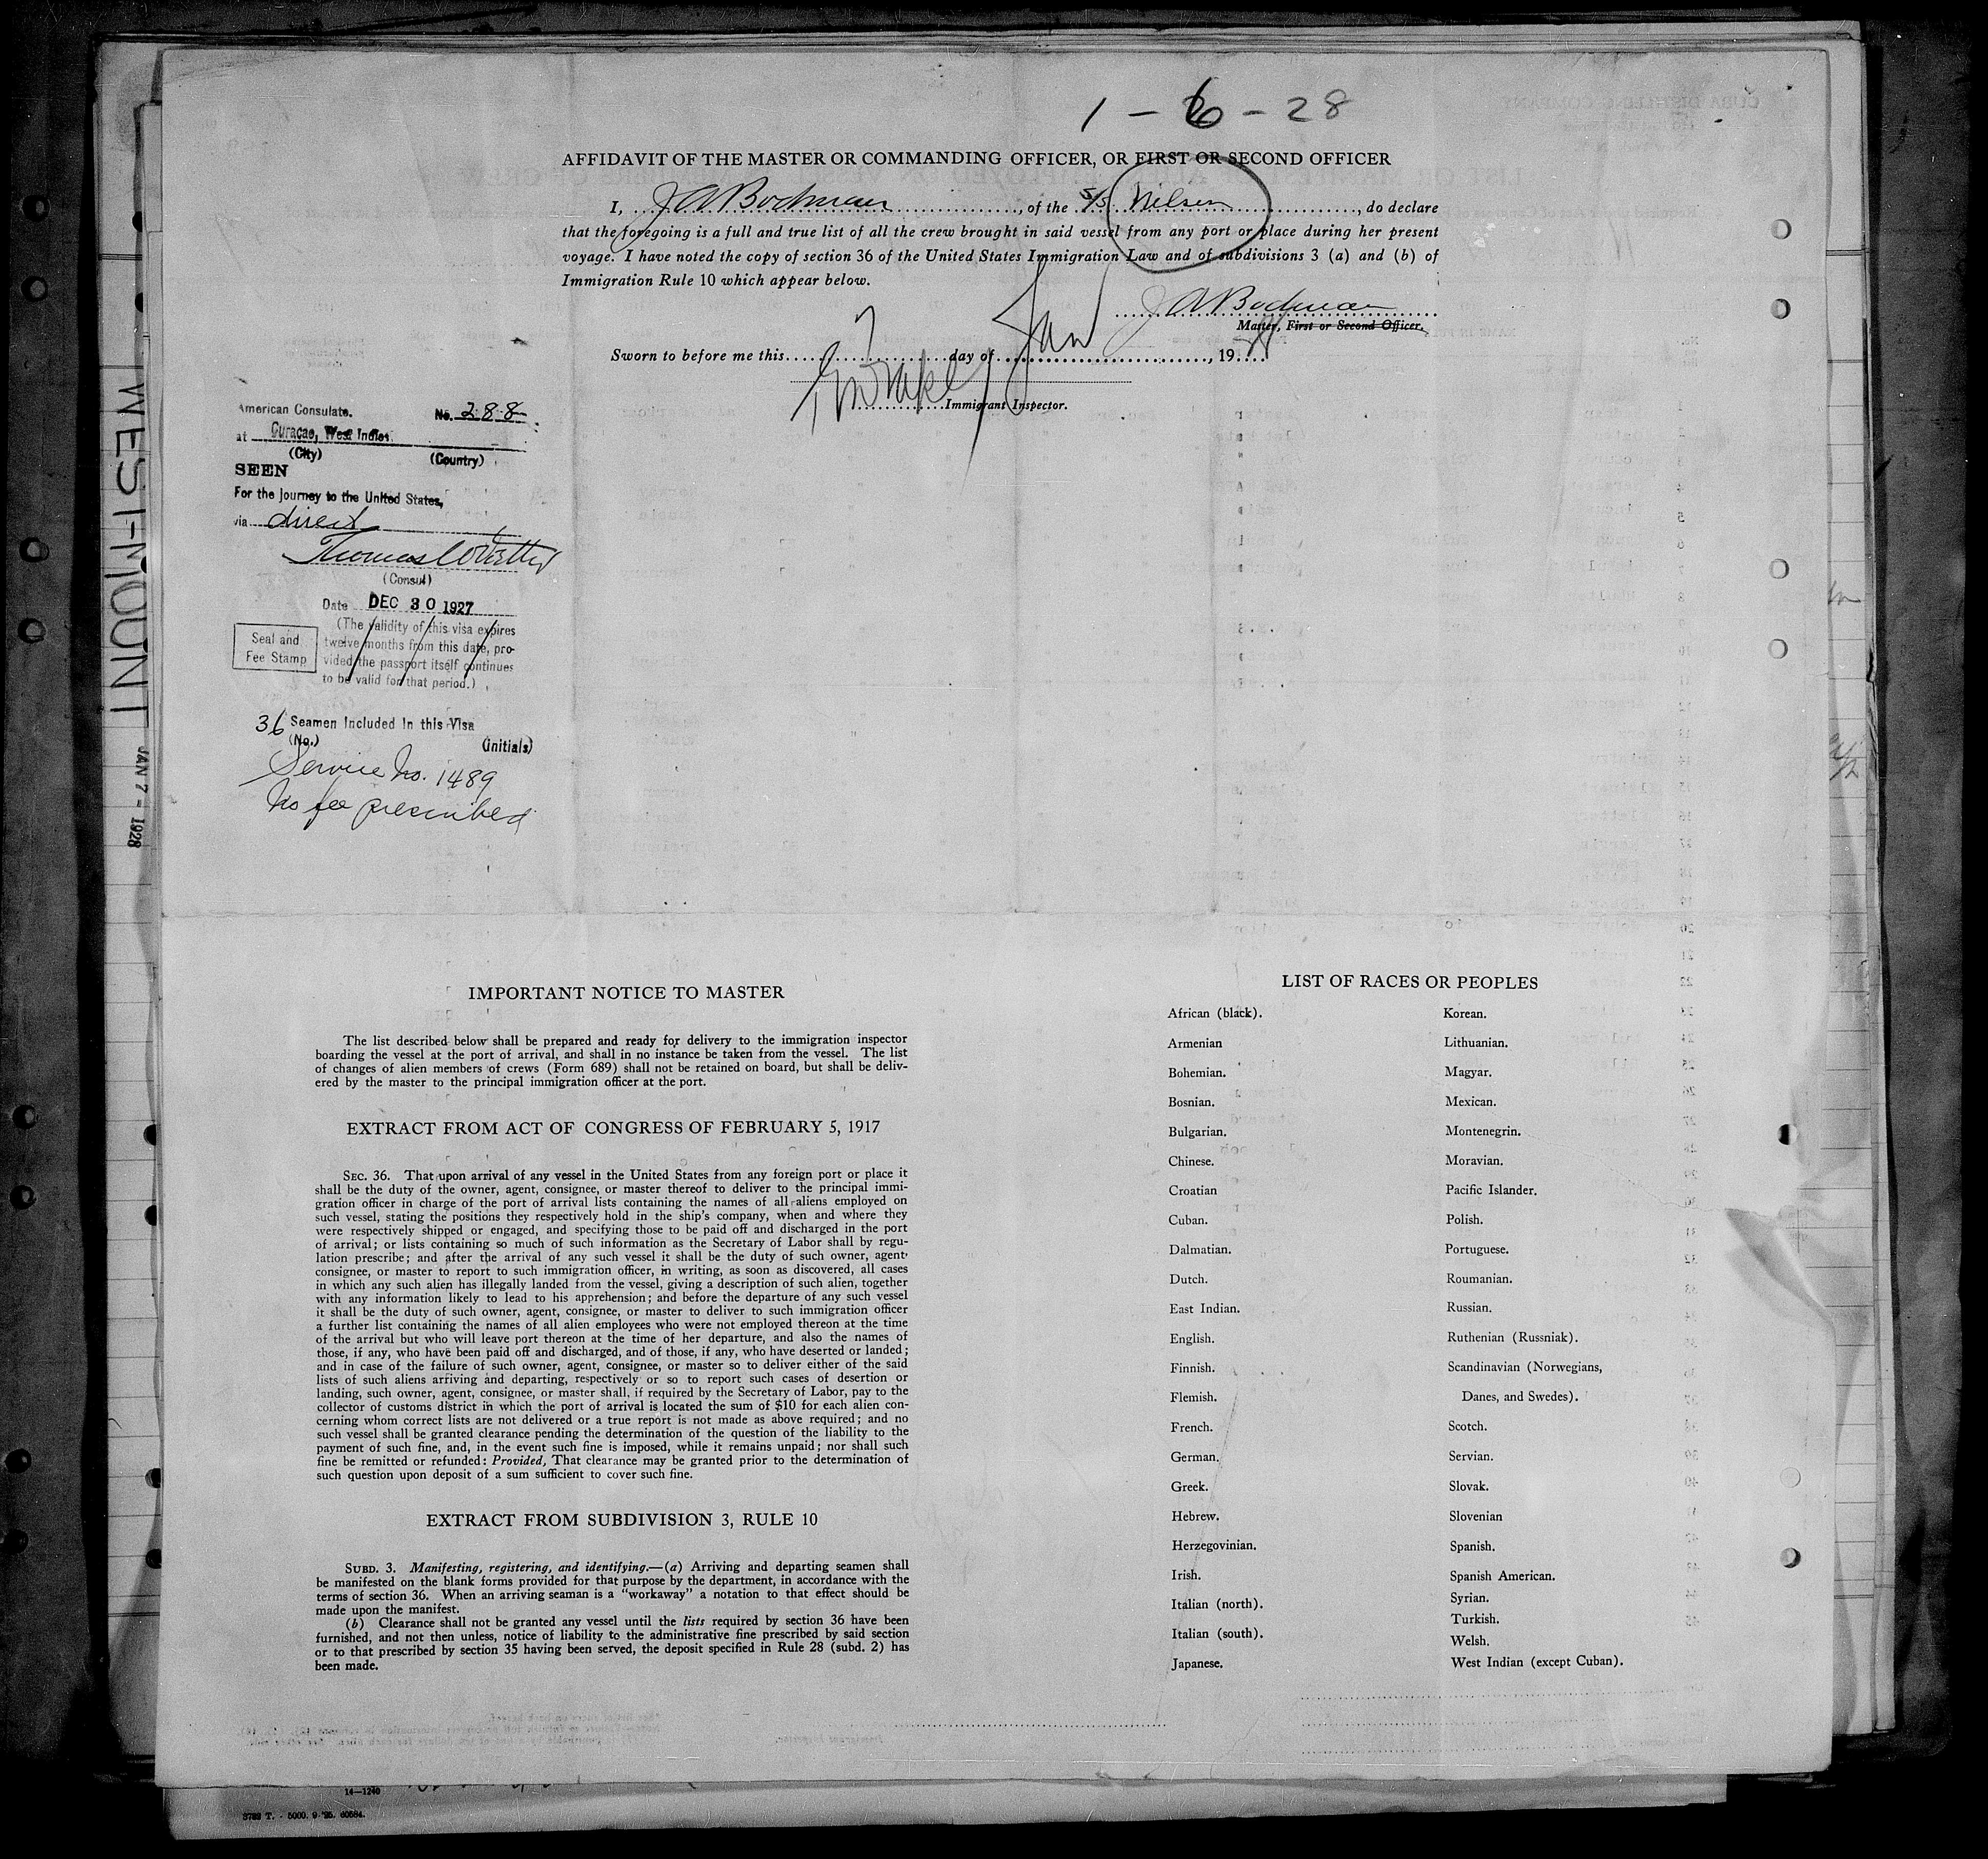 1 - 6 - 28
AFFIDAVIT OF THE MASTER OR COMMANDING OFFICER, OR FIRST OR SECOND OFFICER
I, J A Bodman, of the S/S Nilsen, do declare
that the foregoing is a full and true list of all the crew brought in said vessel from any port or place during her present
voyage. I have noted the copy of section 36 of the United States Immigration Law and of subdivisions 3 (a) and (b) of
Immigration Rule 10 which appear below.
J A Bodman
Master, First or Second Officer.
Sworn to before me this 7 day of Jan, 1928
Immigrant Inspector.
American Consulate. No. 288
at Curacao, West Indies.
(City) (Country)
SEEN
For the Journey to the United States,
via direct
Thomas
(Consul)
Date DEC 30 1927
(The validity of this visa expires
twelve months from this date, pro-
vided the passport itself continues
to be valid for that period.)
Seal and
Fee Stamp
36 Seamen Included in this Visa
(No.) (Initials)
Service No. 1489
No fee prescribed
WESTMOUNT
JAN 7 - 1928
IMPORTANT NOTICE TO MASTER
The list described below shall be prepared and ready for delivery to the immigration inspector
boarding the vessel at the port of arrival, and shall in no instance be taken from the vessel. The list
of changes of alien members of crews (Form 689) shall not be retained on board, but shall be deliv-
ered by the master to the principal immigration officer at the port.
EXTRACT FROM ACT OF CONGRESS OF FEBRUARY 5, 1917
SEC. 36. That upon arrival of any vessel in the United States from any foreign port or place it
shall be the duty of the owner, agent, consignee, or master thereof to deliver to the principal immi-
gration officer in charge of the port of arrival lists containing the names of all aliens employed on
such vessel, stating the positions they respectively hold in the ship's company, when and where they
were respectively shipped or engaged, and specifying those to be paid off and discharged in the port
of arrival; or lists containing so much of such information as the Secretary of Labor shall by regu-
lation prescribe; and after the arrival of any such vessel it shall be the duty of such owner, agent,
consignee, or master to report to such immigration officer, in writing, as soon as discovered, all cases
in which any such alien has illegally landed from the vessel, giving a description of such alien, together
with any information likely to lead to his apprehension; and before the departure of any such vessel
it shall be the duty of such owner, agent, consignee, or master to deliver to such immigration officer
a further list containing the names of all alien employees who were not employed thereon at the time
of the arrival but who will leave port thereon at the time of her departure, and also the names of
those, if any, who have been paid off and discharged, and of those, if any, who have deserted or landed;
and in case of the failure of such owner, agent, consignee, or master so to deliver either of the said
lists of such aliens arriving and departing, respectively or so to report such cases of desertion or
landing, such owner, agent, consignee, or master shall, if required by the Secretary of Labor, pay to the
collector of customs district in which the port of arrival is located the sum of $10 for each alien con-
cerning whom correct lists are not delivered or a true report is not made as above required; and no
such vessel shall be granted clearance pending the determination of the question of the liability to the
payment of such fine, and, in the event such fine is imposed, while it remains unpaid; nor shall such
fine be remitted or refunded: Provided, That clearance may be granted prior to the determination of
such question upon deposit of a sum sufficient to cover such fine.
EXTRACT FROM SUBDIVISION 3, RULE 10
SUBD. 3. Manifesting, registering, and identifying.—(a) Arriving and departing seamen shall
be manifested on the blank forms provided for that purpose by the department, in accordance with the
terms of section 36. When an arriving seaman is a "workaway" a notation to that effect should be
made upon the manifest.
(b) Clearance shall not be granted any vessel until the lists required by section 36 have been
furnished, and not then unless, notice of liability to the administrative fine prescribed by said section
or to that prescribed by section 35 having been served, the deposit specified in Rule 28 (subd. 2) has
been made.
LIST OF RACES OR PEOPLES
African (black).
Armenian
Bohemian.
Bosnian.
Bulgarian.
Chinese.
Croatian
Cuban.
Dalmatian.
Dutch.
East Indian.
English.
Finnish.
Flemish.
French.
German.
Greek.
Hebrew.
Herzegovinian.
Irish.
Italian (north).
Italian (south).
Japanese.
Korean.
Lithuanian.
Magyar.
Mexican.
Montenegrin.
Moravian.
Pacific Islander.
Polish.
Portuguese.
Roumanian.
Russian.
Ruthenian (Russniak).
Scandinavian (Norwegians,
Danes, and Swedes).
Scotch.
Servian.
Slovak.
Slovenian
Spanish.
Spanish American.
Syrian.
Turkish.
Welsh.
West Indian (except Cuban).
14—1240